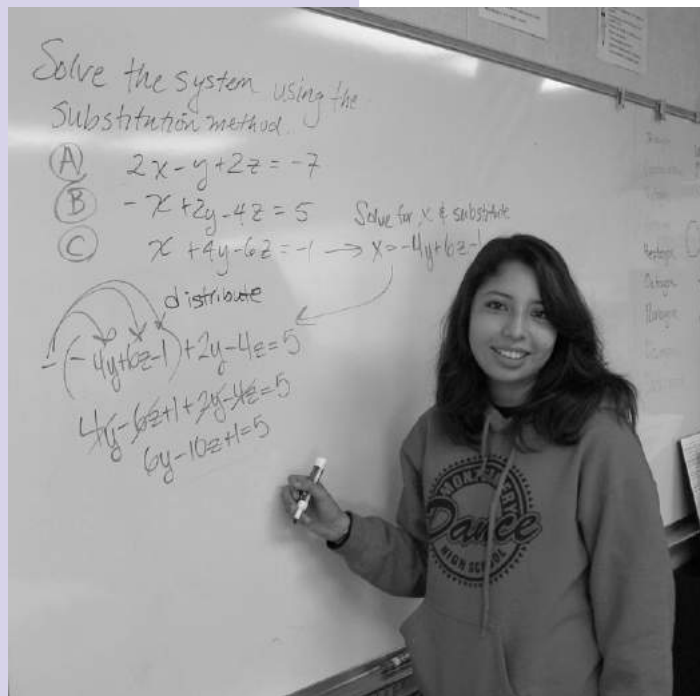 Solve the system using the
substitution method.
(A) 2x - y + 2z = -7
(B) -x + 2y - 4z = 5
Solve for x & substitute
(C) x + 4y - 6z = -1 → x = -4y + 6z - 1
distribute
-(-4y+6z-1) + 2y - 4z = 5
4y - 6z + 1 + 2y - 4z = 5
6y - 10z + 1 = 5
MONTGOMERY
Dance
HIGH SCHOOL
Heptagon
Octagon